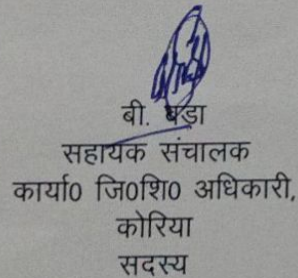 बी. एंड़ा
सहायक संचालक
कार्या0 जि0शि0 अधिकारी,
कोरिया
सदस्य